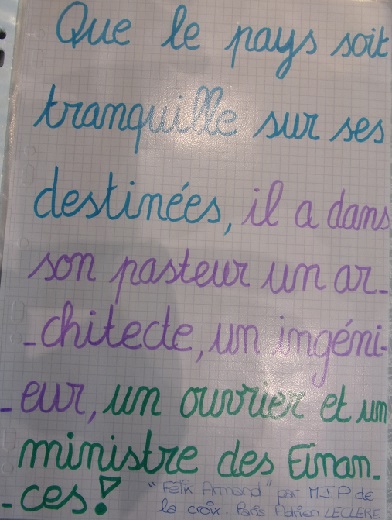 Que le pays soit
tranquille sur ses
destinées, il a dans
son pasteur un ar-
-chitecte, un ingéni-
-eur, un ouvrier et un
ministre des Finan-
-ces!
"Félix Armand" par M-P de
la croix. Paris Adrien LECLERE